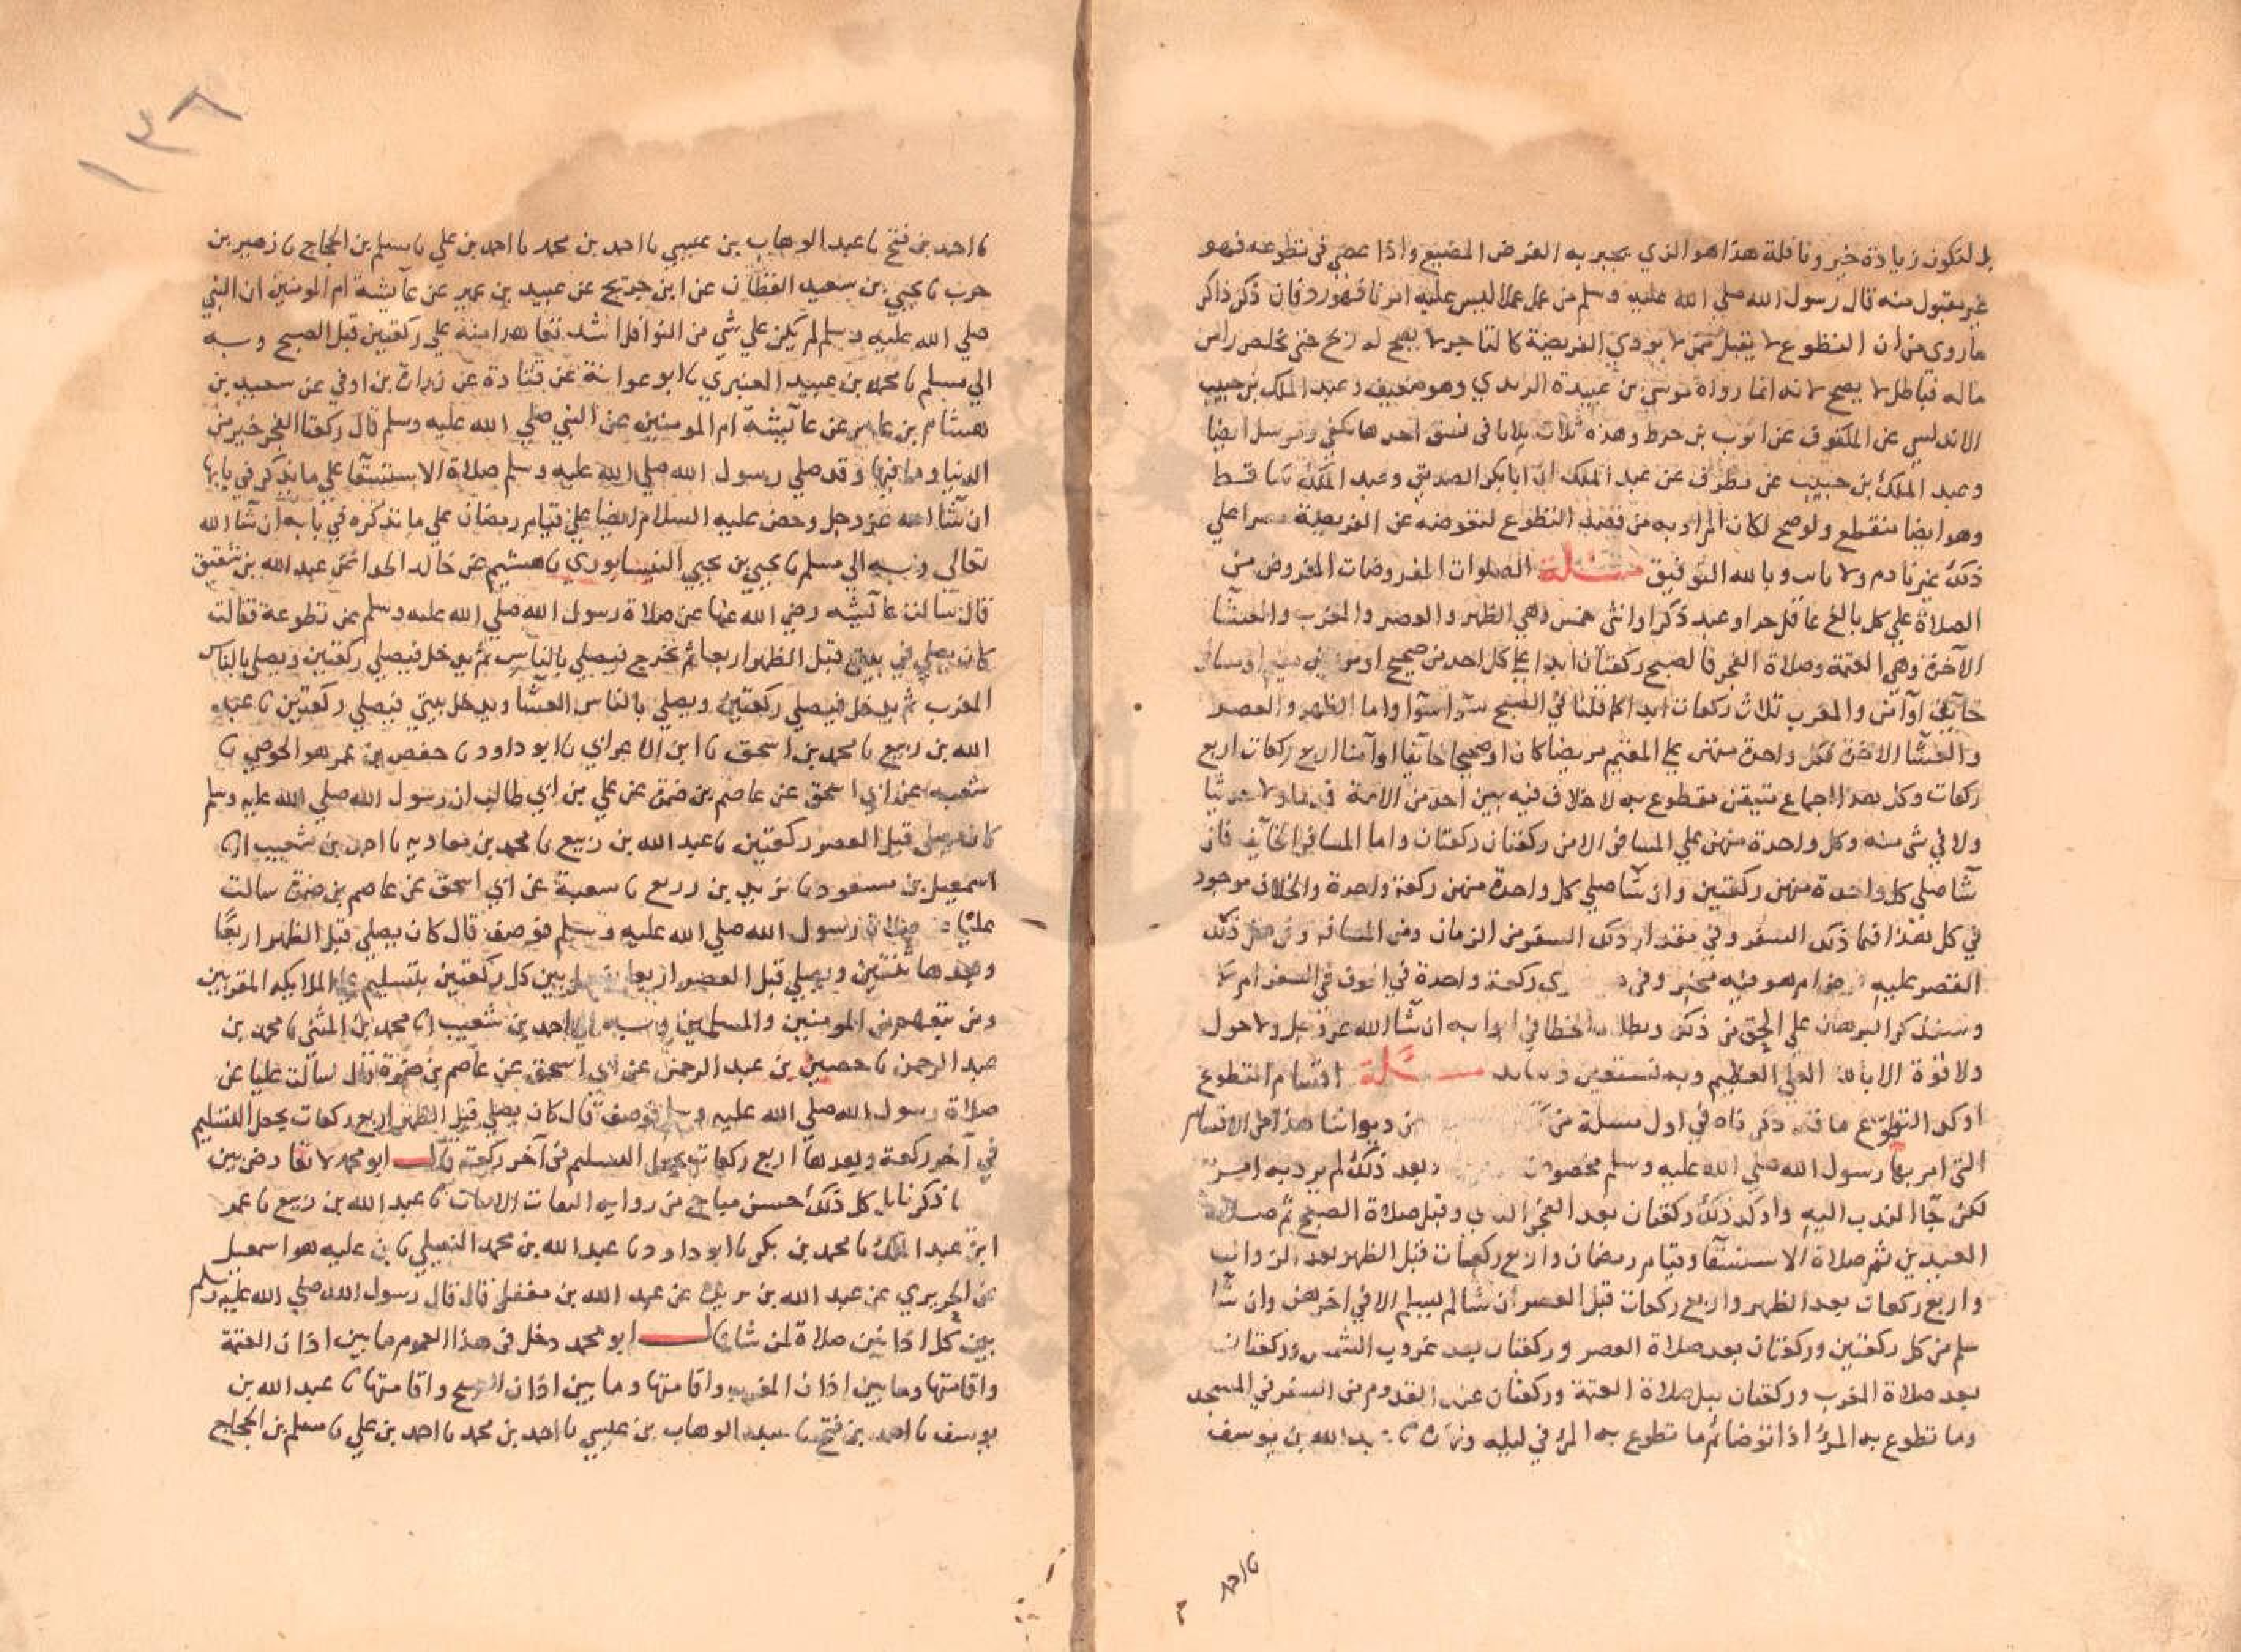 بل لتكون زيادة خير ونافلة هذا هو الذي يجبر به الفرض المضيع واذا عصى في تطوعه فهو
غير مقبول منه قال رسول الله صلي الله عليه وسلم من عمل عملا ليس عليه امرنا فهو رد فان ذكر ذاكر
ما روي من ان التطوع لا يقبل ممن لا يودي الفريضة كالتاجر لا يصح له ربح حتى يخلص راس
ماله فباطل لا يصح لانه انما رواه موسى بن عبيدة الربدي وهو ضعيف وعبد الملك بن حبيب
الاندلسي عن المكفوف عن ايوب بن خوط وهذه ثلاث بلايا في نسق احدها يكفي ومرسل ايضا
وعبد الملك بن حبيب عن مطرف عن عبد الملك ان ابا بكر الصديق وعبد الملك ساقط
وهو ايضا منقطع ولو صح لكان المراد به من قصد التطوع لتعوضه عن الفريضة مصرا علي
ذلك غير نادم ولا تايب وبالله التوفيق مسئلة الصلوات المفروضات المفروض من
الصلاة علي كل بالغ عاقل حر او عبد ذكر او انثى خمس وهي الظهر والعصر والمغرب والعشا
الآخرة وهي العتمة وصلاة الفجر فالصبح ركعتان ابدا علي كل احد من صحيح او مريض مقيم او مسافر
خايف او آمن والمغرب ثلاث ركعات ابدا كما قلنا في الصبح سوآ سوآ واما الظهر والعصر
والعشا الاخرة فكل واحدة منهن علي المقيم مريضا كان او صحيحا خايفا او آمنا اربع ركعات اربع
ركعات وكل هذا اجماع متيقن مقطوع به لا خلاف فيه بين احد من الامة قديما ولا حديثا
ولا في شي منه وكل واحدة منهن علي المسافر الامن ركعتان ركعتان واما المسافر الخايف فان
شا صلي كل واحدة منهن ركعتين وان شا صلي كل واحدة منهن ركعة واحدة والخلاف موجود
في كل هذا فما ذلك السفر وفي مقدار ذلك السفر من الزمان ومن المسافة وفي هل ذلك
القصر عليه فرض ام هو فيه مخير وفي ركعة واحدة في الخوف في السفر ام لا
وسنذكر البرهان علي الحق من ذلك وبطلان الخطا في ابوابه ان شآ الله عز وجل ولا حول
ولا قوة الا بالله العلي العظيم وبه نستعين مسئلة اقسام التطوع
اوكد التطوع ما قد ذكرناه في اول مسلة من من ديواننا هذا من الاقسام
التي امر بها رسول الله صلي الله عليه وسلم مخصوصة وبعد ذلك ما لم يرد به امر
لكن جآ الندب اليه واوكد ذلك ركعتان بعد الفجر الثاني وقبل صلاة الصبح ثم صلاة
العيدين ثم صلاة الاستسقآ وقيام رمضان واربع ركعات قبل الظهر بعد الزوال
واربع ركعات بعد الظهر واربع ركعات قبل العصر ان شا لم يسلم الا في اخرهن وان شا
سلم من كل ركعتين وركعتان بعد صلاة العصر وركعتان بعد غروب الشمس وركعتان
بعد صلاة المغرب وركعتان قبل صلاة العتمة وركعتان عند القدوم من السفر في المسجد
وما تطوع به المرؤ اذا توضا ثم ما تطوع به المرؤ في ليله ونهاره نا عبد الله بن يوسف
نا احمد
١٣٨
نا احمد بن فتح نا عبد الوهاب بن عيسي نا احمد بن محمد نا احمد بن علي نا مسلم بن الحجاج نا زهير بن
حرب نا يحيي بن سعيد القطان عن ابن جريج عن عبيد بن عمير عن عآيشة ام المومنين ان النبي
صلي الله عليه وسلم لم يكن علي شي من النوافل اشد تعاهدا منه علي ركعتين قبل الصبح وبه
الي مسلم نا محمد بن عبيد العنبري نا ابو عوانة عن قتادة عن زرارة بن اوفي عن سعيد بن
هشام بن عامر عن عآيشة ام المومنين عن النبي صلي الله عليه وسلم قال ركعتا الفجر خير من
الدنيا وما فيها وقد صلي رسول الله صلي الله عليه وسلم صلاة الاستسقآ علي ما نذكر في بابها
ان شآ الله عز وجل وحض عليه السلام ايضا علي قيام رمضان علي ما نذكره في بابه ان شآ الله
تعالي وبه الي مسلم نا يحيي بن يحيي النيسابوري نا هشيم عن خالد الحذا عن عبد الله بن شقيق
قال سالت عآيشه رضي الله عنها عن صلاة رسول الله صلي الله عليه وسلم عن تطوعه فقالت
كان يصلي في بيتي قبل الظهر اربعا ثم يخرج فيصلي بالناس ثم يدخل فيصلي ركعتين ويصلي بالناس
المغرب ثم يدخل فيصلي ركعتين ويصلي بالناس العشا ويدخل بيتي فيصلي ركعتين نا عبد
الله بن ربيع نا محمد بن اسحق نا ابن الاعرابي نا ابو داود نا حفص بن عمر هو الحوضي نا
شعبه عن ابي اسحق عن عاصم بن ضمرة عن علي بن ابي طالب ان رسول الله صلي الله عليه وسلم
كان يصلي قبل العصر ركعتين نا عبد الله بن ربيع نا محمد بن معاويه نا احمد بن شعيب انا
اسمعيل بن مسعود نا يزيد بن زريع نا شعبة عن ابي اسحق عن عاصم بن ضمرة سالت
عليا عن صلاة رسول الله صلي الله عليه وسلم فوصف قال كان يصلي قبل الظهر اربعًا
وبعدها ثنتين ويصلي قبل العصر اربعا يفصل بين كل ركعتين بتسليم علي الملايكه المقربين
ومن تبعهم من المومنين والمسلمين وبه الي احمد بن شعيب انا محمد بن المثنى نا محمد بن
عبد الرحمن نا حصين بن عبد الرحمن عن ابي اسحق عن عاصم بن ضمرة قال سالت عليا عن
صلاة رسول الله صلي الله عليه وسلم فوصف قال كان يصلي قبل الظهر اربع ركعات يجعل التسليم
في آخر ركعة وبعدها اربع ركعات يجعل التسليم في آخر ركعة قال ابو محمد لا تعارض بين
ما ذكرنا بل كل ذلك حسن مباح من رواية الثقات الاثبات نا عبد الله بن ربيع نا عمر
ابن عبد الملك نا محمد بن بكر نا ابو داود نا عبد الله بن محمد النفيلي نا بن عليه هو اسمعيل
عن الجريري عن عبد الله بن بريدة عن عبد الله بن مغفل قال قال رسول الله صلي الله عليه وسلم
بين كل اذانين صلاة لمن شا قال ابو محمد دخل في هذا العموم ما بين اذان العتمة
واقامتها وما بين اذان المغرب واقامتها وما بين اذان الصبح واقامتها نا عبد الله بن
يوسف نا احمد بن فتح نا عبد الوهاب بن عيسي نا احمد بن محمد نا احمد بن علي نا مسلم بن الحجاج